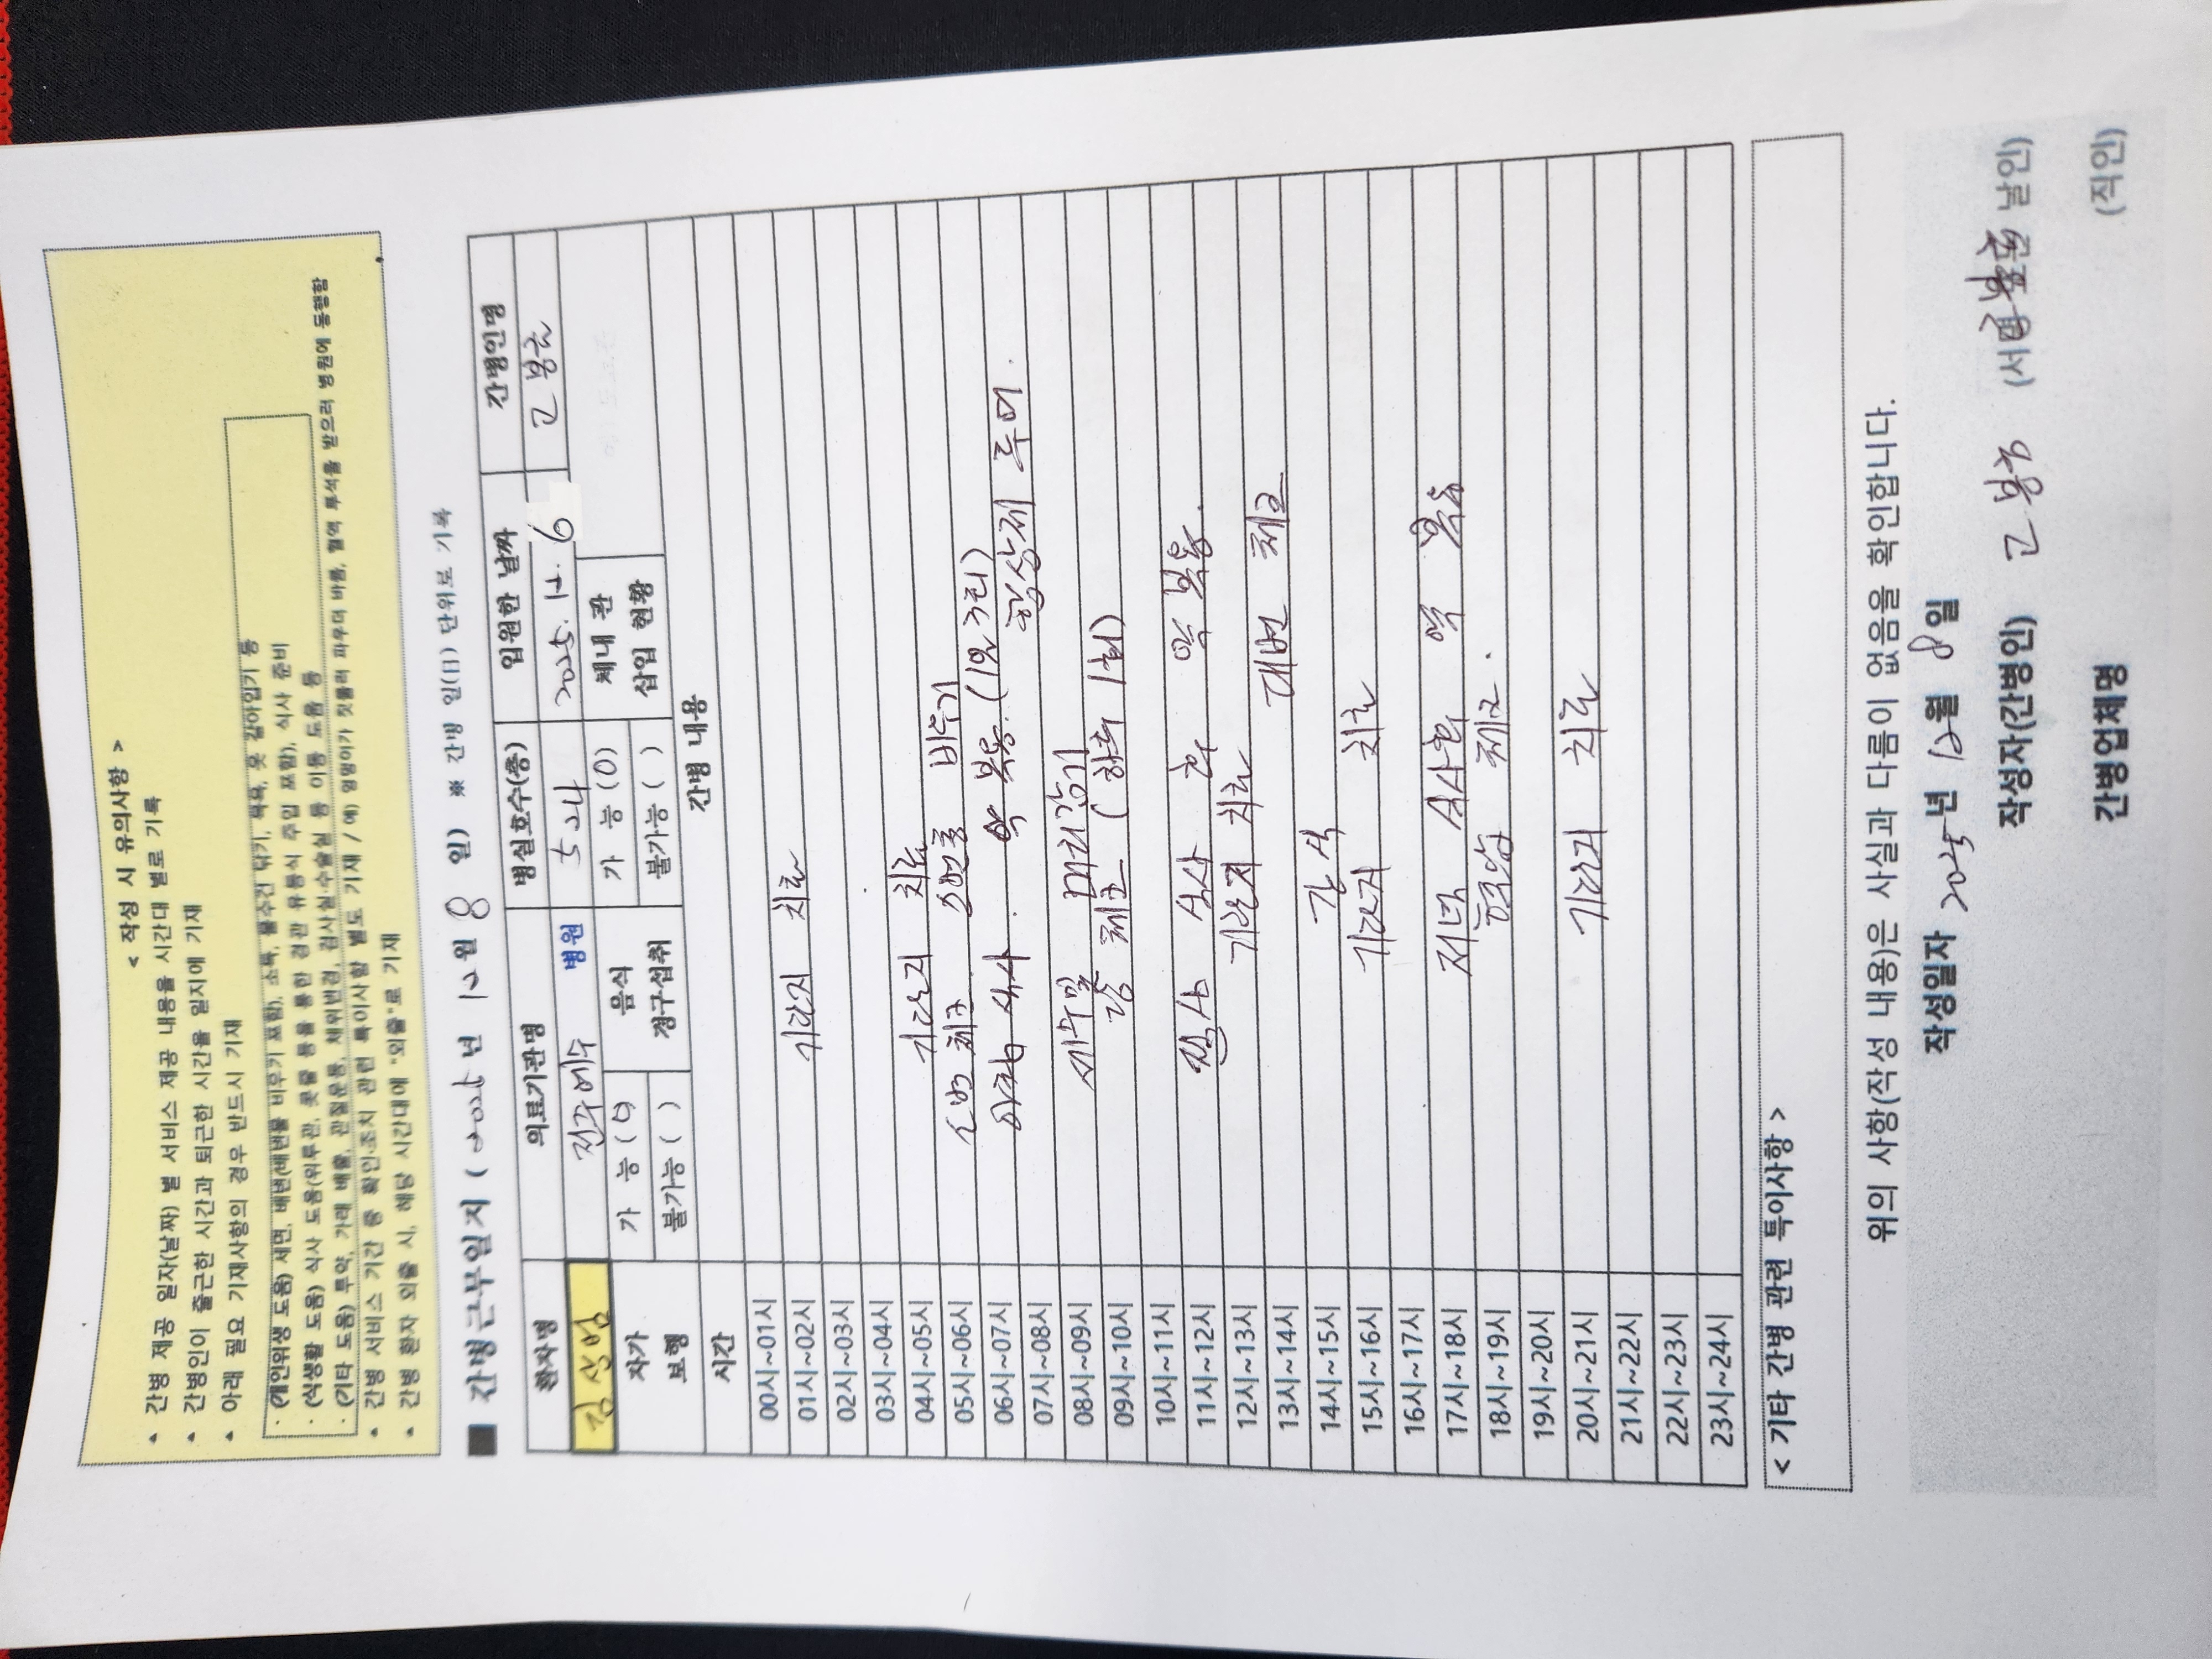 < 작성 시 유의사항 >
▲ 간병 제공 일자(날짜) 별 서비스 제공 내용을 시간대 별로 기록
▲ 간병인이 출근한 시간과 퇴근한 시간을 일지에 기재
▲ 아래 필요 기재사항의 경우 반드시 기재
· (개인위생 도움) 세면, 배변(배변물 비우기 포함), 소독, 물수건 닦기, 목욕, 옷 갈아입기 등
· (식생활 도움) 식사 도움(위루관, 콧줄 등을 통한 경관 유동식 주입 포함), 식사 준비
· (기타 도움) 투약, 가래 배출, 관절운동, 체위변경, 검사실·수술실 등 이동 도움 등
▲ 간병 서비스 기간 중 확인·조치 관련 특이사항 별도 기재 / 예) 엉덩이가 짓물러 파우더 바름, 혈액 투석을 받으러 병원에 동행함
▲ 간병 환자 외출 시, 해당 시간대에 "외출"로 기재
■ 간병근무일지 ( 2025 년 12 월 8 일) ※ 간병 일(日) 단위로 기록
환자명 의료기관명 병실호수(층) 입원한 날짜 간병인명
김상범 전주예수 병원 524 2025. 12. 6 고봉순
자가 보행 가 능 (O) 불가능 ( ) 음식 경구섭취 가 능 (O) 불가능 ( ) 체내 관 삽입 현황
시간 간병 내용
00시~01시
01시~02시 기저귀 치료
02시~03시
03시~04시
04시~05시 기저귀 치료
05시~06시 소변 체크 소변줄 비우기
06시~07시 아침 식사. 약 복용. (1일 3회) 항상제 투여.
07시~08시
08시~09시 세수 및 머리감기
09시~10시 당 체크 (하루 1회)
10시~11시
11시~12시 점심 식사 후 약 복용.
12시~13시 기저귀 치료
13시~14시 대변 체크
14시~15시 간식
15시~16시 기저귀 치료
16시~17시
17시~18시 저녁 식사후 약 복용
18시~19시 혈압 체크.
19시~20시
20시~21시 기저귀 치료
21시~22시
22시~23시
23시~24시
< 기타 간병 관련 특이사항 >
위의 사항(작성 내용)은 사실과 다름이 없음을 확인합니다.
작성일자 2025년 12월 8일
작성자(간병인) 고봉순 (서명 또는 날인)
간병업체명 (직인)